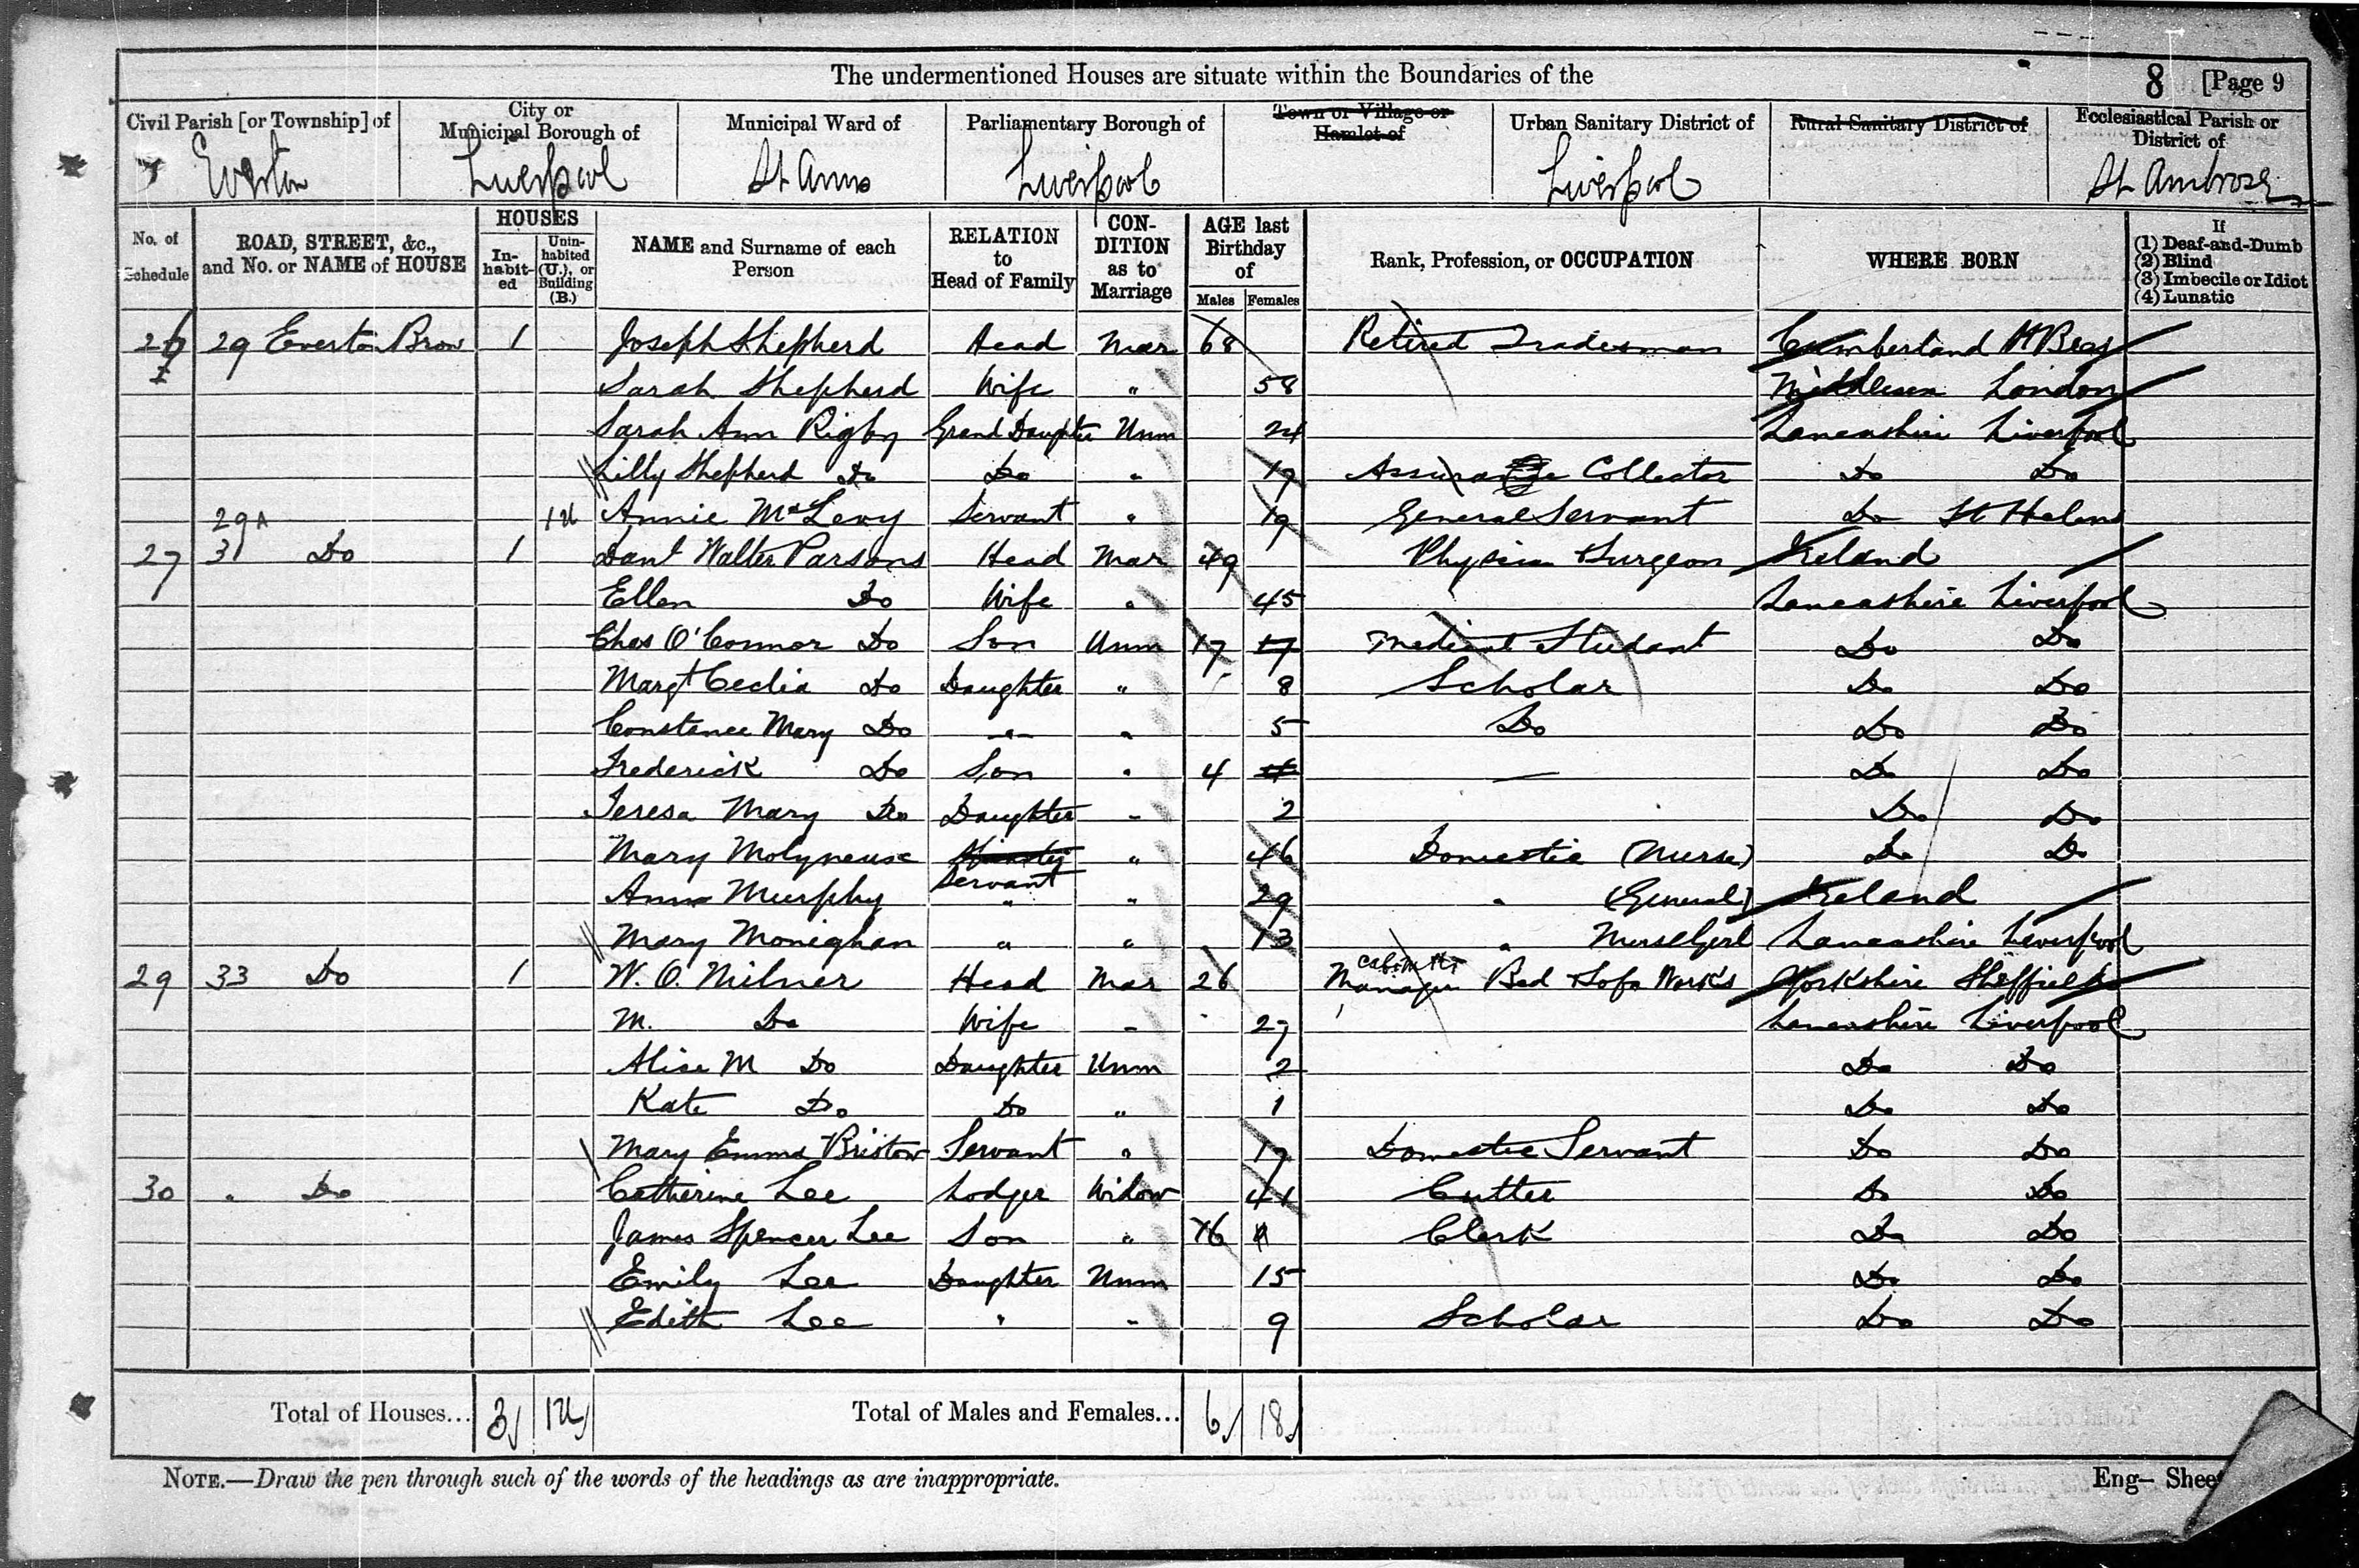 The undermentioned Houses are situate within the Boundaries of the
8 [Page 9
Civil Parish [or Township] of
Everton
City or Municipal Borough of
Liverpool
Municipal Ward of
St Anns
Parliamentary Borough of
Liverpool
Town or Village or Hamlet of
Urban Sanitary District of
Liverpool
Rural Sanitary District of
Ecclesiastical Parish or District of
St Ambrose
No. of Schedule
ROAD, STREET, &c., and No. or NAME of HOUSE
HOUSES
In-habit-ed
Unin-habited (U.), or Building (B.)
NAME and Surname of each Person
RELATION to Head of Family
CON-DITION as to Marriage
AGE last Birthday of
Males Females
Rank, Profession, or OCCUPATION
WHERE BORN
If
(1) Deaf-and-Dumb
(2) Blind
(3) Imbecile or Idiot
(4) Lunatic
26 29 Everton Brow 1 Joseph Shepherd Head Mar 68 Retired Tradesman Cumberland
Sarah Shepherd Wife " 58 Middlesex London
Sarah Ann Rigby Grand Daughter Unm 24 Lancashire Liverpool
Lilly Shepherd Do Do " 19 Assurance Collector Do Do
29A 1U Annie McLevy Servant " 19 General Servant Do St Helens
27 31 Do 1 Danl Walter Parsons Head Mar 49 Physician Surgeon Ireland
Ellen Do Wife " 45 Lancashire Liverpool
Chas O'Connor Do Son Unm 17 17 Medical Student Do Do
Margt Cecilia Do Daughter " 8 Scholar Do Do
Constance Mary Do " " 5 Do Do Do
Frederick Do Son " 4 4 — Do Do
Teresa Mary Do Daughter " 2 Do Do
Mary Molyneuse Servant " 46 Domestic (Nurse) Do Do
Ann Murphy " " 29 " (General) Ireland
Mary Moneghan " " 13 " Nurse Girl Lancashire Liverpool
29 33 Do 1 W. O. Milner Head Mar 26 Manager Bed Sofa Works Yorkshire Sheffield
M. Do Wife " 27 Lancashire Liverpool
Alise M Do Daughter Unm 2 Do Do
Kate Do Do " 1 Do Do
Mary Emma Bristow Servant " 19 Domestic Servant Do Do
30 " Do Catherine Lee Lodger Widow 41 Cutter Do Do
James Spencer Lee Son " 16 Clerk Do Do
Emily Lee Daughter Unm 15 Do Do
Edith Lee " " 9 Scholar Do Do
Total of Houses... 3 1U Total of Males and Females... 6 18
NOTE.—Draw the pen through such of the words of the headings as are inappropriate.
Eng— Sheet